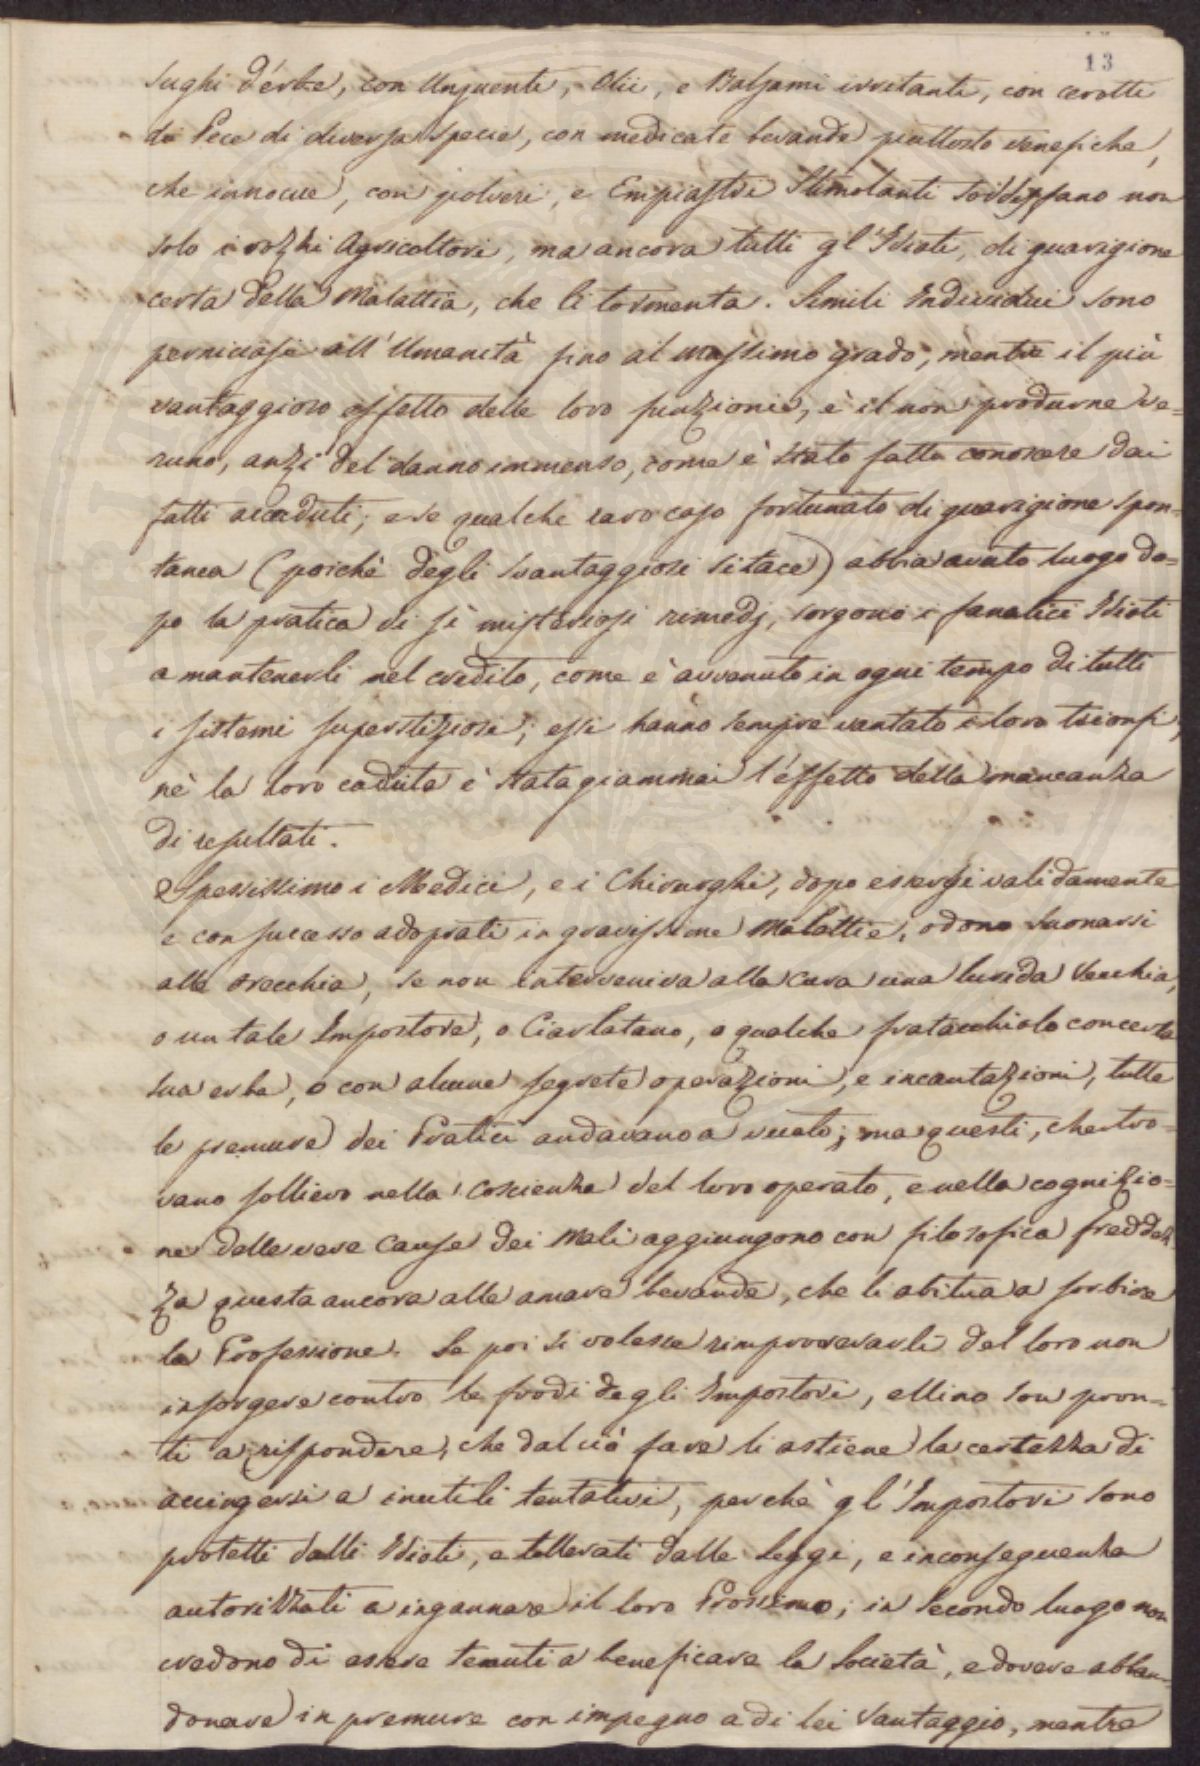 13
sughi d'erbe, con Unguenti, Olii, e Balsami irritanti, con cerotti
di Pece di diversa specie, con medicate bevande piuttosto venefiche,
che innocue, con polveri, e Empiastri Stimolanti soddisfano non
solo i rozzi Agricoltori, ma ancora tutti gl'Idioti, di guarigione
certa della Malattia, che li tormenta. Simili Individui sono
perniciosi all'Umanità fino al massimo grado, mentre il più
vantaggioso effetto delle loro funzioni, è il non produrne ve=
runo, anzi del danno immenso, come è stato fatto conoscere dai
fatti accaduti; e se qualche raro caso fortunato di guarigione spon=
tanea (poichè degli svantaggiosi si tace) abbia avuto luogo do=
po la pratica di sì misteriosi rimedj, sorgono i fanatici Idioti
a mantenerli nel credito, come è avvenuto in ogni tempo di tutti
i sistemi superstiziosi; essi hanno sempre vantato i loro trionfi,
nè la loro caduta è stata giammai l'effetto della mancanza
di resultati.
Spessissimo i Medici, e i Chirurghi, dopo essersi validamente
e con successo adoprati in gravissime Malattie, odono suonarsi
alle orecchia, se non interveniva alla cura una lurida Vecchia,
o un tale Impostore, o Ciarlatano, o qualche fratacchiolo con certa
sua erba, o con alcune segrete operazioni, e incantazioni, tutte
le premure dei Pratici andavano a vuoto; ma questi, che tro=
vano sollievo nella coscienza del loro operato, e nella cognizio=
ne delle vere cause dei Mali aggiungono con filosofica freddez
za questa ancora alle amare bevande, che li abitua a sorbire
la Professione. Se poi si volesse rimproverarli del loro non
insorgere contro le frodi degli Impostori, ellino son pron=
ti a rispondere, che dal ciò fare li astiene la certezza di
accingersi a inutili tentativi, perchè gl'Impostori sono
protetti dalli Idioti, e tollerati dalle Leggi, e in conseguenza
autorizzati a ingannare il loro Prossimo; in secondo luogo non
credono di essere tenuti a beneficare la Società, e dovere abban=
donare in premure con impegno a di lei vantaggio, mentre